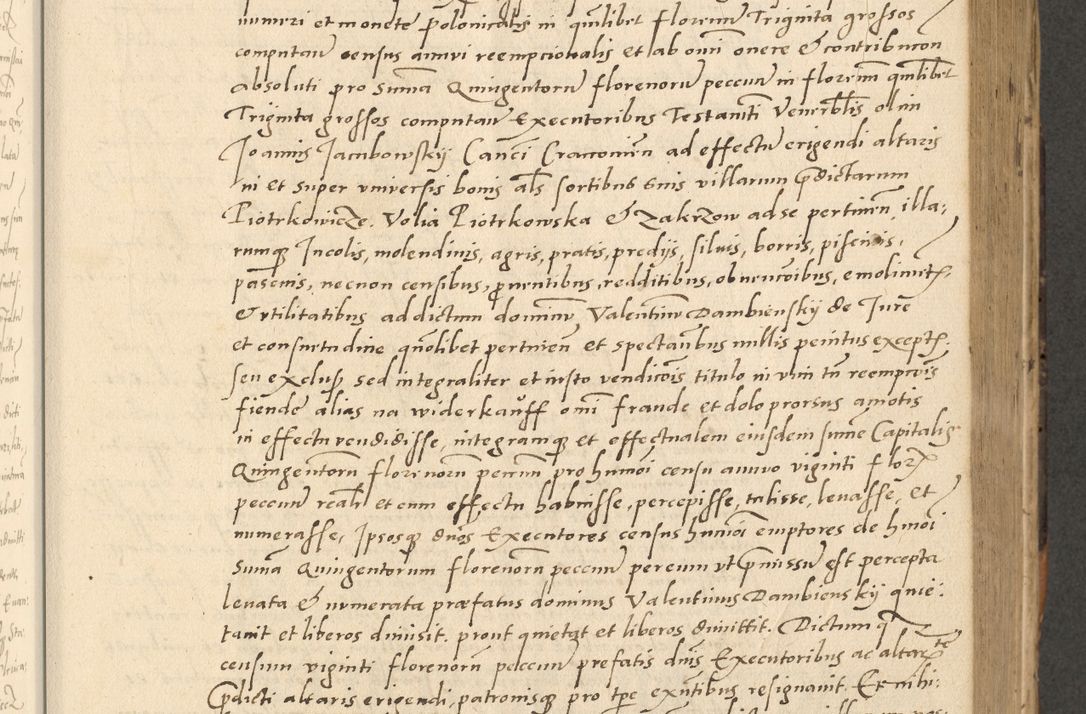 numeri et monete Polonicalis in qmlibet florenum Trignita grossos
computan census annui reempcionalis et ab omni onere & contribucon
absoluti pro suma Quingentoru florenoru peccun in florenum qmlibet
Trignita grossos computan Executoribus Testamti Venerblis olim
Joannis Jambowskij Canci Cracouien ad effectu erigendi altaris
ni et super vniuersis bonis als sortibus suis villarum pdictarum
Piotrkowicze. Volia Piotrkowska & Zakrzow ad se pertinen illa:
rumq Incolis, molendinis, agris, pratis, predijs, siluis, borris, piscinis,
pascuis, necnon censibus, prouentibus, redditibus, obuencoibus, emolimet
& vtilitatibus ad dictum dominum Valentinum Dambienskij de Jure
et consuetudine qmolibet pertinen et spectanbus nullis penitus except.
seu exclus, sed integraliter et iusto vendicois titulo ni vim tn reempcois
fiende alias na widerkauff omi fraude et dolo prorsus amotis
in effectu vendidisse, integramq et effectualem eiusdem sume Capitalis
Quingentoru florenoru pecun pro humoi censu annuo viginti flor
peccun reali et cum effectu habuisse, percepisse, tulisse, leuasse, et
numerasse, Ipsosq duos Executores census humoi emptores de hmoi
Suma Quingentorum florenoru peccun pereum vt pmissu est percepta
leuata & numerata praefatus dominus Valentinus Dambienskij quie:
tauit et liberos dimisit. prout quietat et liberos dimittit. Dictum q
censum viginti florenoru peccun prefatis dnis Executoribus ac altar te
pdicti altaris erigendi, patronisq pro tpe exntibus resignauit. Et nihi: